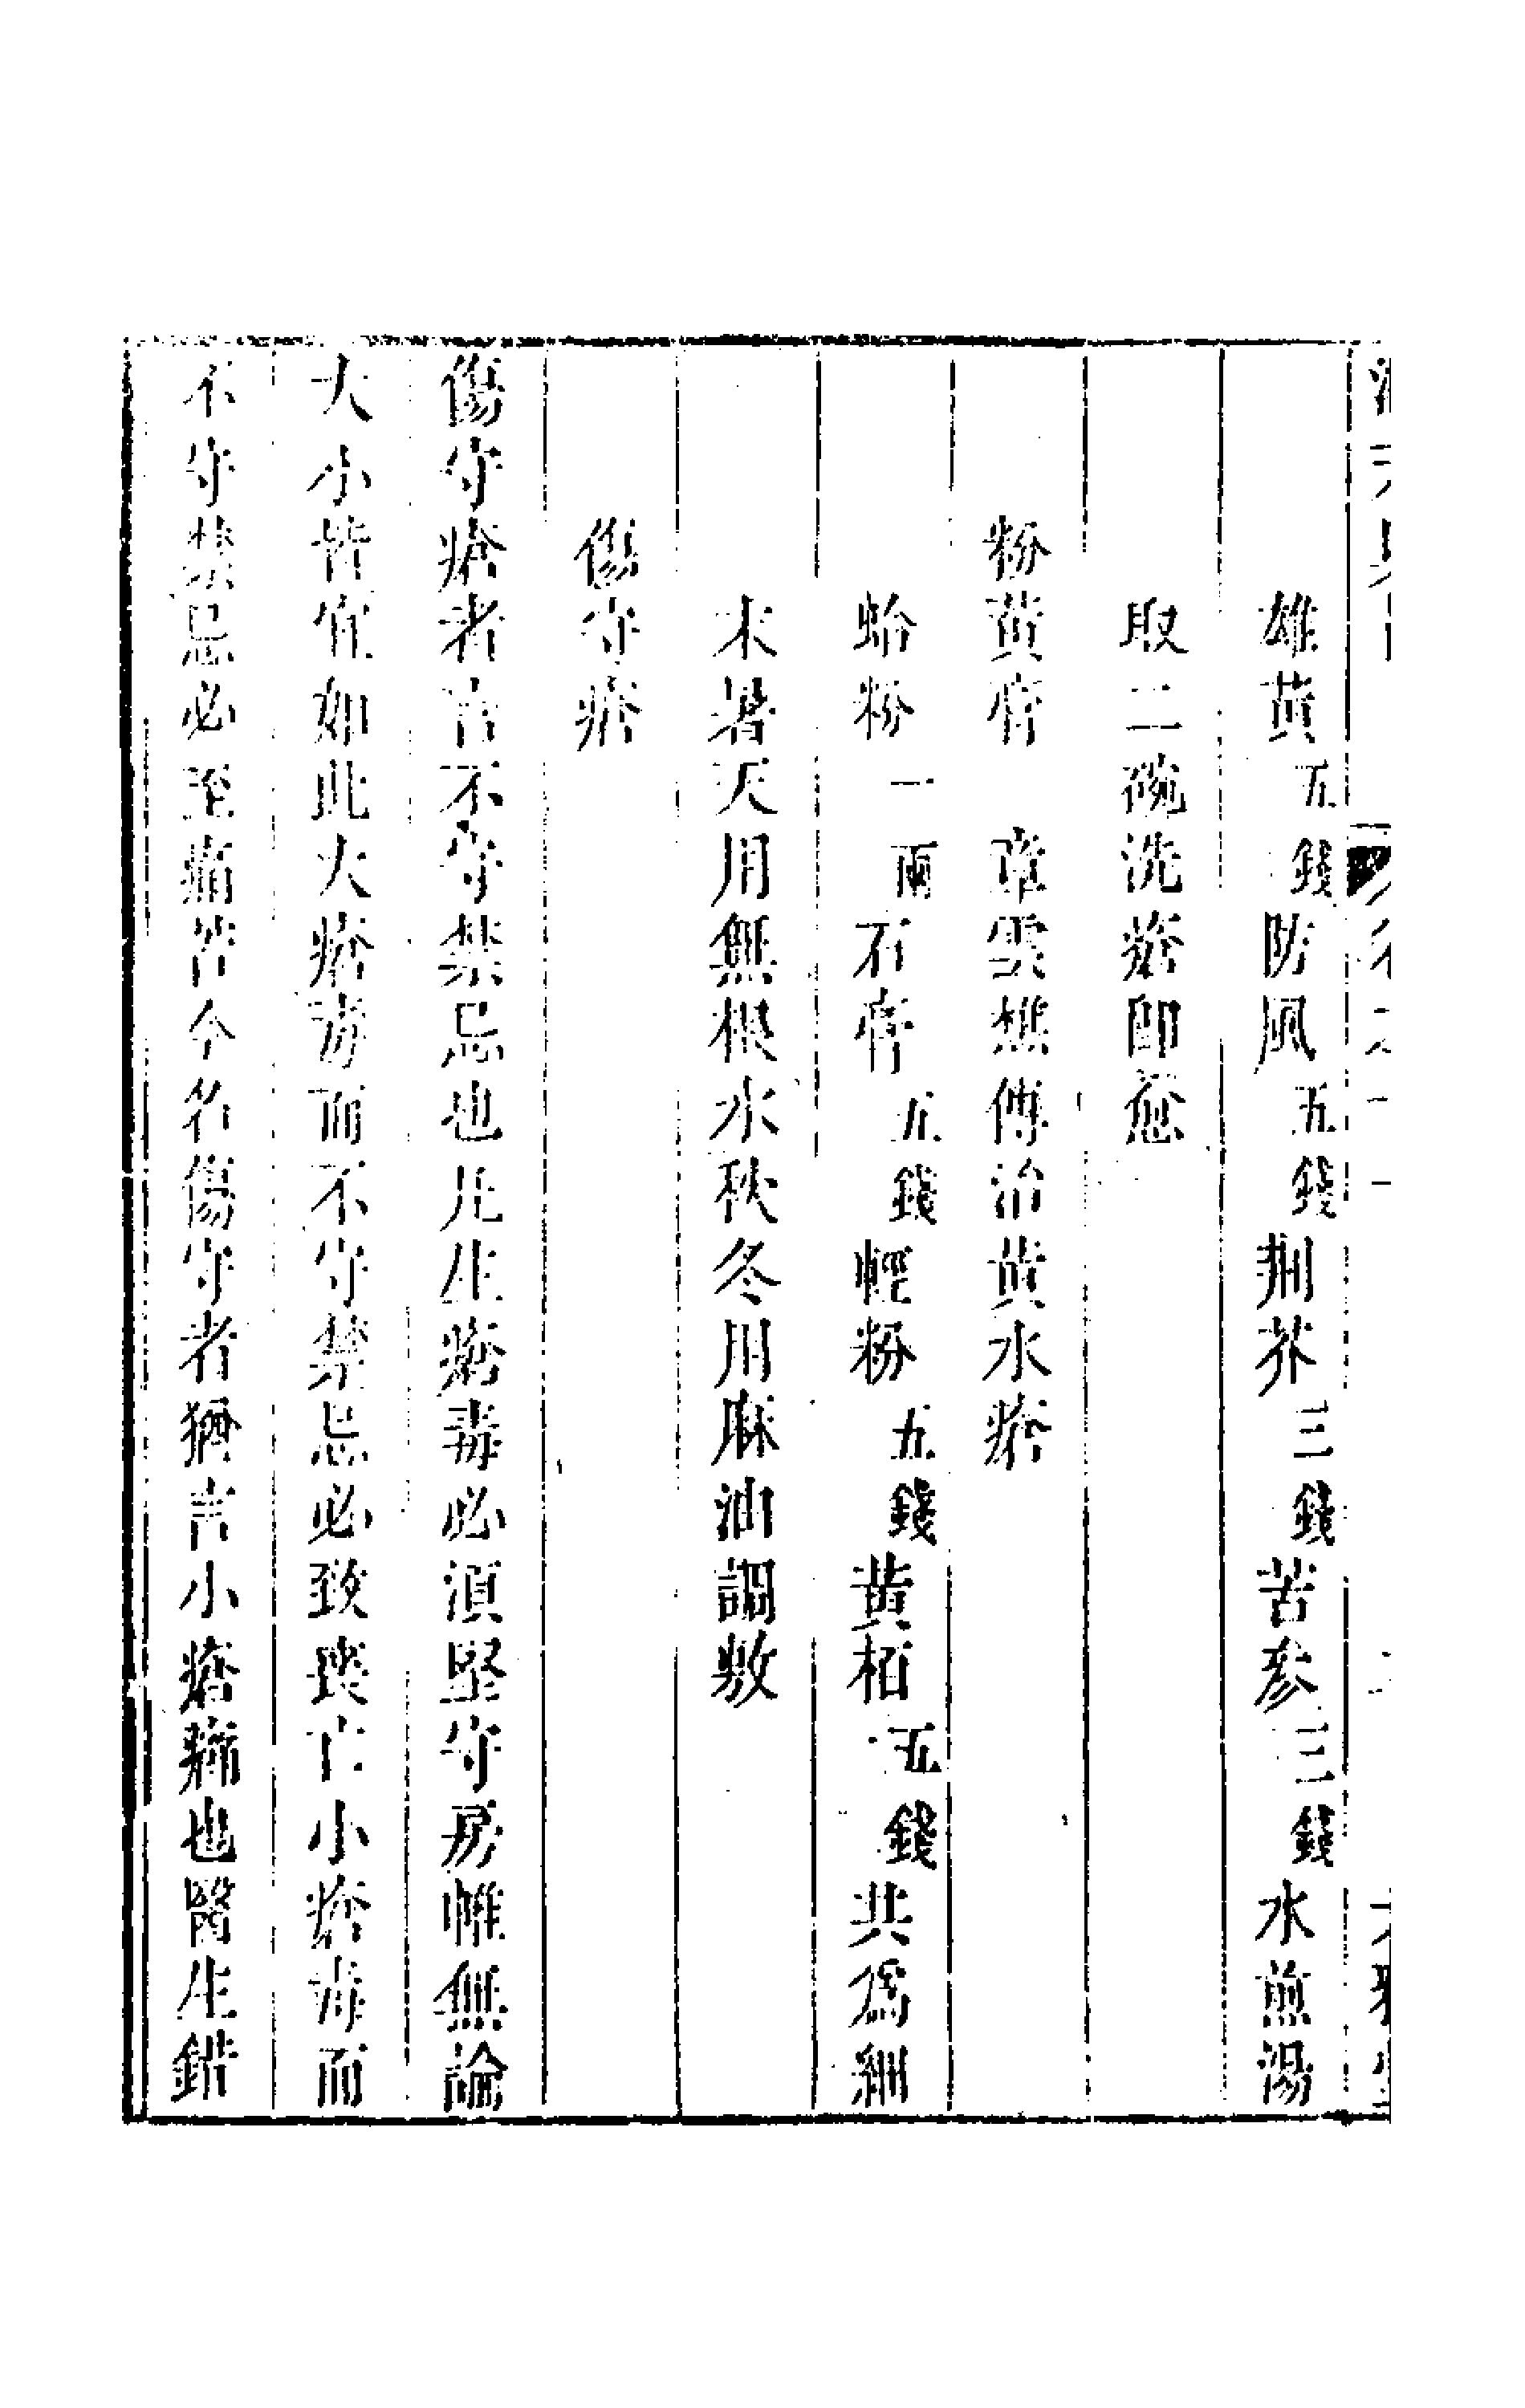 雄黃五錢防風五錢荆芥三錢苦參三錢水煎湯
取二碗洗瘡即愈
粉黃膏　章雲樵傳治黃水瘡
蛤粉一兩石膏五錢輕粉五錢黃栢五錢共為細
末暑天用無根水秋冬用麻油調敷
傷守瘡
傷守瘡者言不守禁忌也凡生瘡毒必須堅守房帷無論
大小皆宜如此大瘡毒而不守禁忌必致喪亡小瘡毒而
不守禁忌必至痛苦今名傷守者猶言小瘡癤也醫生錯